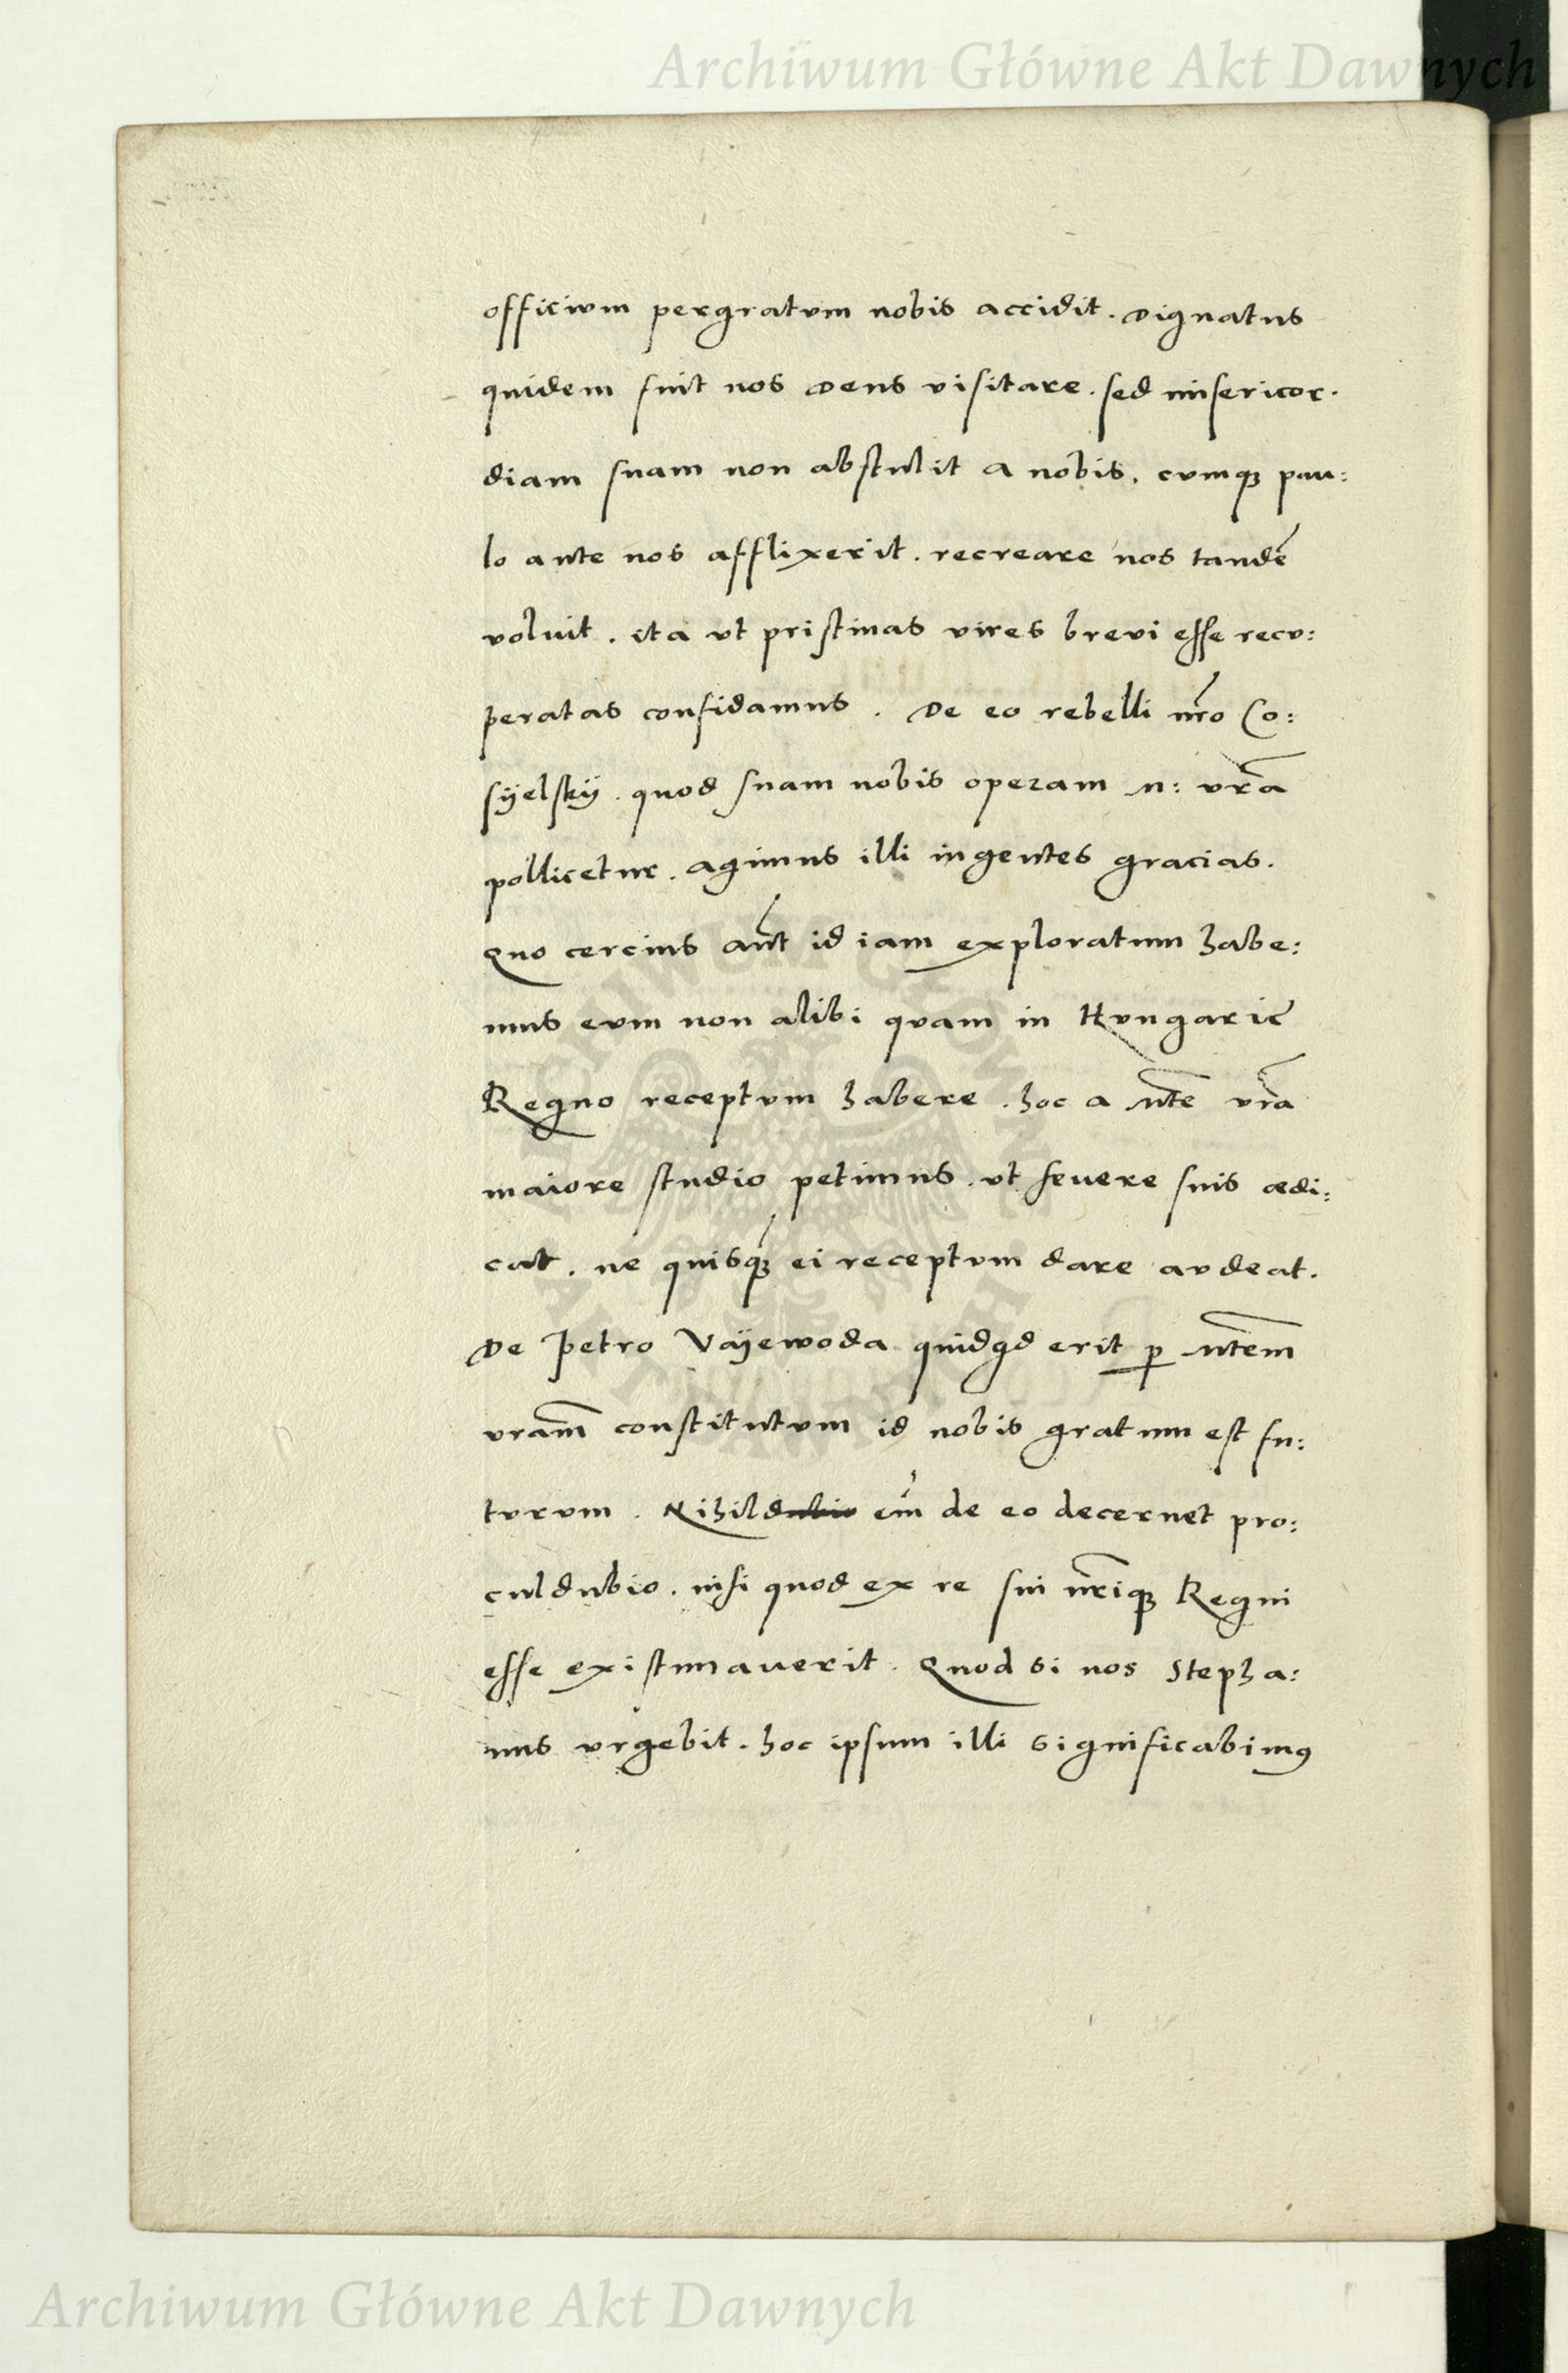 Archiwum Główne Akt Dawnych
officium pergratum nobis accidit. Dignatus
quidem fuit nos Deus visitare. sed misericor.
diam suam non abstulit a nobis. cumqꝫ pau:
lo ante nos afflixerit. recreare nos tandē
voluit. ita vt pristinas vires brevi esse recu:
peratas confidamus. De eo rebelli nr̄o Co:
syelsky. quod suam nobis operam N: vr̄a
pollicetur. agimus illi ingentes gracias.
Quo cercius aūt id iam exploratum habe:
mus eum non alibi quam in Hungarię
Regno receptum habere. hoc a Nt̄e vr̄a
maiore studio petimus. vt severe suis ædi:
cat. ne quisqꝫ ei receptum dare audeat.
De Petro Vayewoda quidqd erit ꝑ Nt̄em
vram̄ constitutum id nobis gratum est fu:
turum. Nihil dubio em̄ de eo decernet pro:
culdubio. nisi quod ex re sui nr̄iqꝫ Regni
esse existimaverit. Quod si nos Stepha:
nus vrgebit. hoc ipsum illi significabimꝰ
Archiwum Główne Akt Dawnych